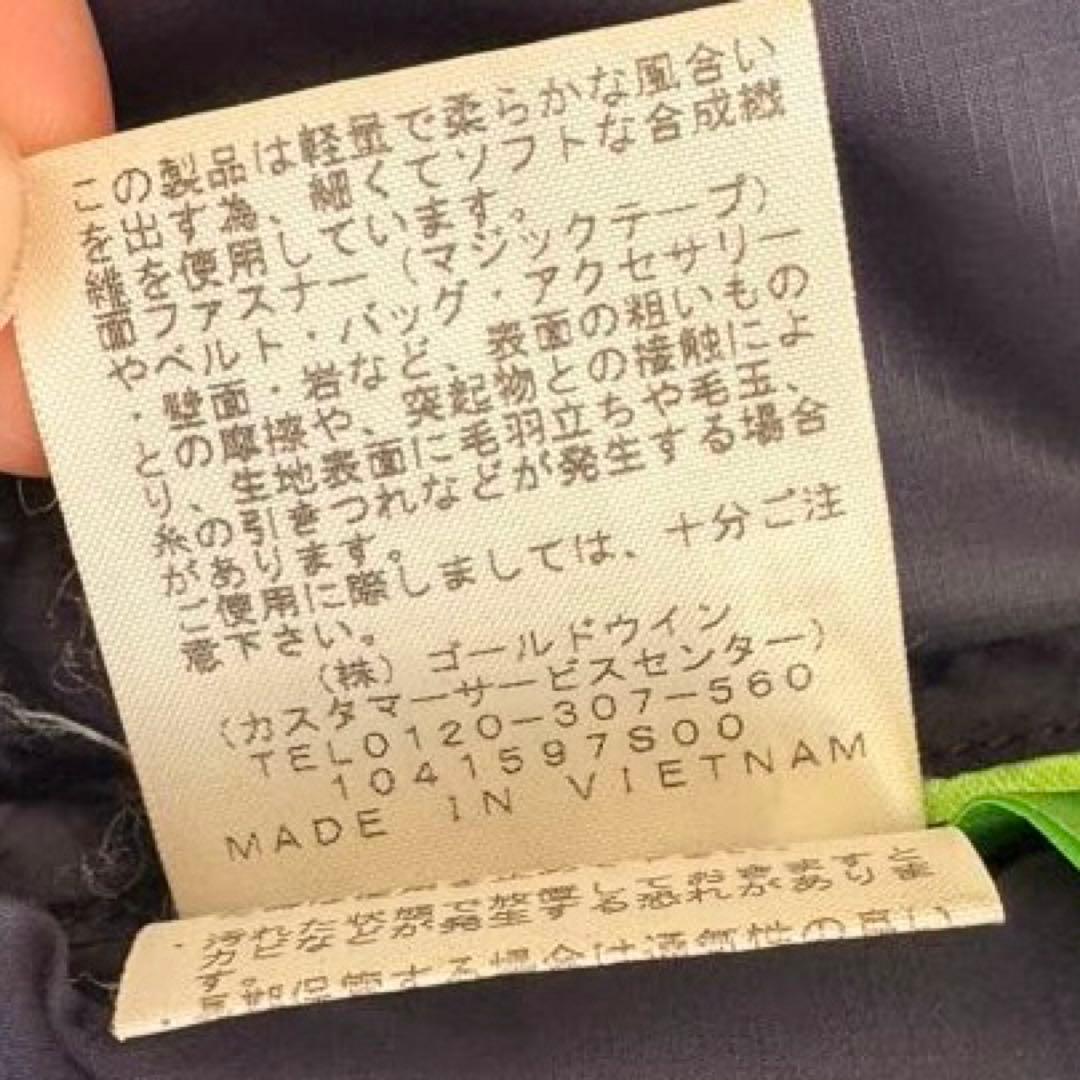 この製品は軽量で柔らかな風合い
を出す為、細くてソフトな合成繊
維を使用しています。
面ファスナー(マジックテープ)
やベルト・バッグ・アクセサリー
・壁面・岩など、表面の粗いもの
との摩擦や、突起物との接触によ
り、生地表面に毛羽立ちや毛玉、
糸の引きつれなどが発生する場合
があります。
ご使用に際しましては、十分ご注
意下さい。
(株)ゴールドウイン
(カスタマーサービスセンター)
TEL0120-307-560
1041597S00
MADE IN VIETNAM